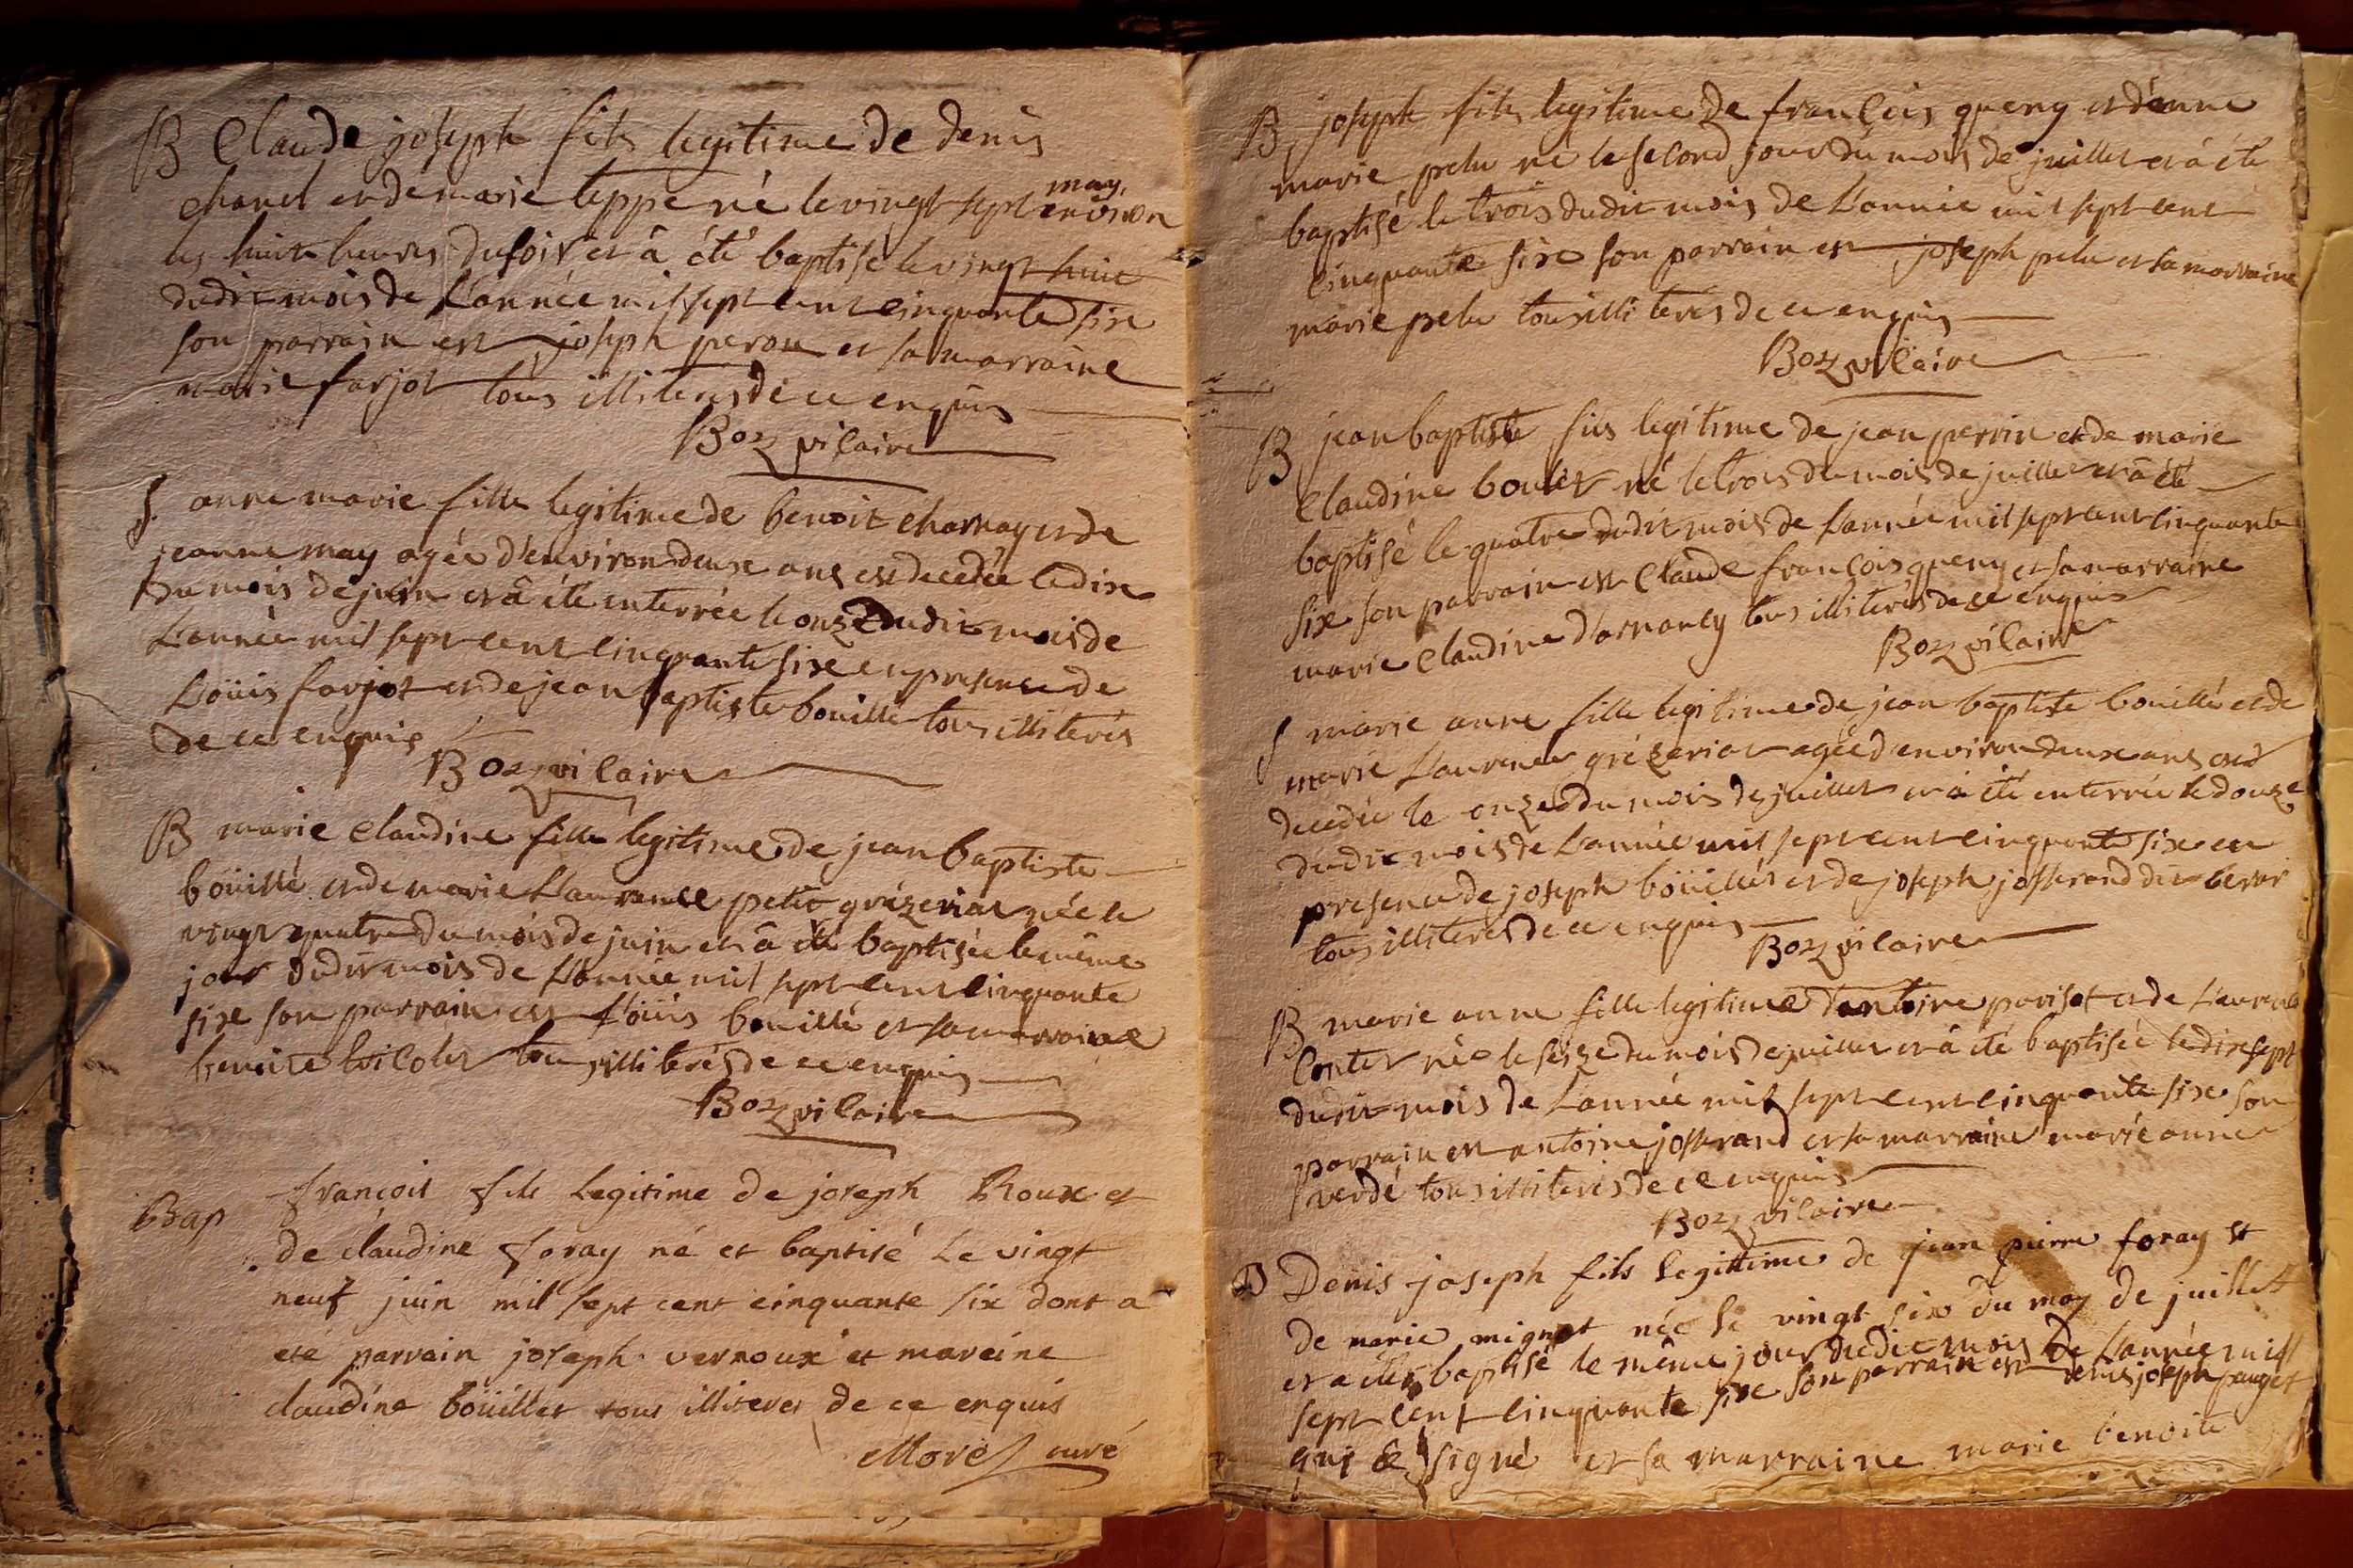 B Claude joseph fils legitime de denis
chanel et de marie teppe né le vingt sept may, environ
les huit heures du soir et â été baptisé le vingt huit
dudit mois de L'année mil sept cent cinquante six
son parrain est joseph perou et sa marraine
marie farjot tous illiterés de ce enquis
Boz vicaire
S. anne marie fille legitime de benoit charnay et de
jeanne may agée d'environ deux ans est decedée le dix
du mois de juin et â été enterrée le onze dudit mois de
L'année mil sept cent cinquante six en presence de
Loüis farjot et de jean baptiste bouillé tous illiterés
de ce enquis
Boz vicaire
B marie Claudine fille legitime de jean baptiste
boüillé et de marie Laurence petit grézeriat née le
vingt quatre du mois de juin et â été baptisée le même
jour dudit mois de L'année mil sept cent cinquante
six son parrain est Loüis bouillé et sa marraine
benoite tous illiterés de ce enquis
Boz vicaire
Bap françois fils Legitime de joseph Roux et
de claudine foray né et baptisé Le vingt
neuf juin mil sept cent cinquante six dont a
eté parrain joseph vernoux et mareine
claudine boüillet tous illiteres de ce enquis
Morel curé
B joseph fils legitime de françois queny et d'anne
marie pelu né le second jour du mois de juillet et â été
baptisé le trois dudit mois de L'année mil sept cent
cinquante six son parrain est joseph pelu et sa marraine
marie pelu tous illiterés de ce enquis
Boz vicaire
B jean baptiste fils legitime de jean perrin et de marie
Claudine boulet né le trois du mois de juillet et â été
baptisé le quatre dudit mois de L'année mil sept cent cinquante
six son parrain est Claude françois queny et sa marraine
marie Claudine d'arnancy tous illiterés de ce enquis
Boz vicaire
S marie anne fille legitime de jean baptiste bouillé et de
marie Laurence grézeriat agée d'environ deux ans est
decedée le onze du mois de juillet et â été enterrée le douze
dudit mois de L'année mil sept cent cinquante six en
presence de joseph boüillet et de joseph josserand dit
tous illiterés de ce enquis
Boz vicaire
B marie anne fille legitime d'antoine pariset et de Laurence
Contet née le seize du mois de juillet et â été baptisée le dix sept
dudit mois de L'année mil sept cent cinquante six son
parrain est antoine josserand et sa marraine marie anne
verdé tous illiterés de ce enquis
Boz vicaire
B Denis joseph fils legittime de jean pierre foray et
de marie mignot née le vingt six du moy de juillet
et a été baptisé le même jour dudit mois de L'année mil
sept cent cinquante six son parrain est denis joseph pauget
qui a signé et sa marraine marie benoite